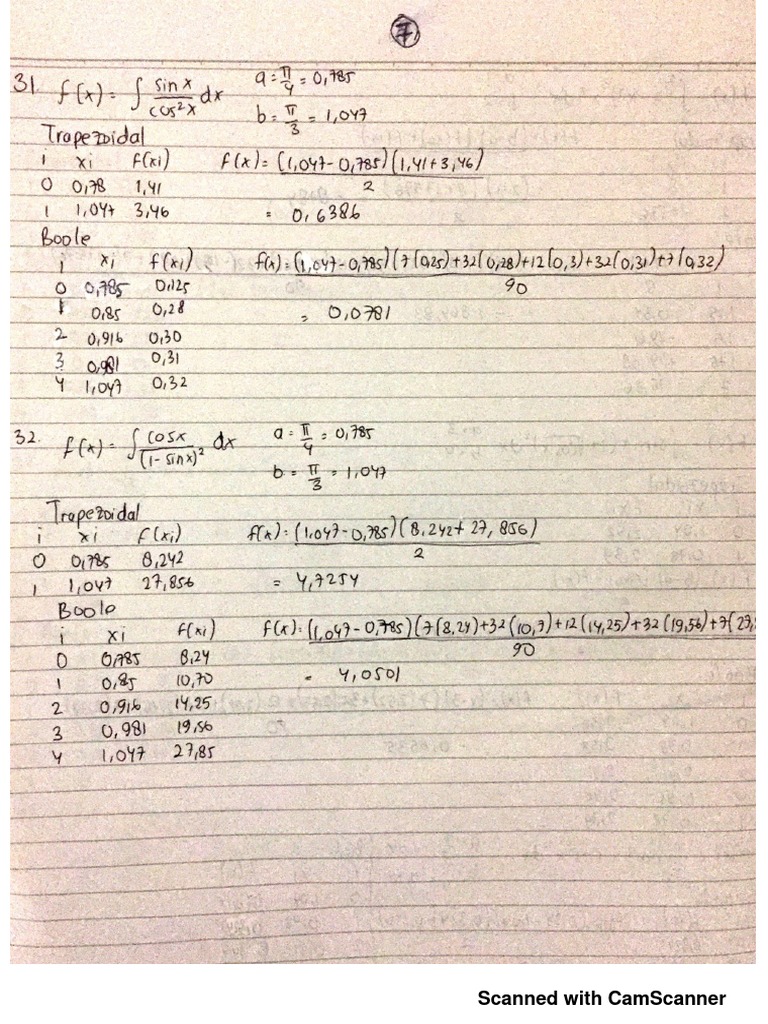 7
31. f(x) = ∫ sin x / cos²x dx   a = π/4 = 0,785
b = π/3 = 1,047
Trapezoidal
i   xi   f(xi)   f(x) = (1,047 - 0,785)(1,41 + 3,46) / 2
0   0,78   1,41
1   1,047   3,46   = 0,6386
Boole
i   xi   f(xi)   f(x) = (1,047 - 0,785)(7(0,25) + 32(0,28) + 12(0,3) + 32(0,31) + 7(0,32) / 90
0   0,785   0,125
1   0,85   0,28   = 0,0781
2   0,916   0,30
3   0,981   0,31
4   1,047   0,32
32. f(x) = ∫ cos x / (1 - sin x)² dx   a = π/4 = 0,785
b = π/3 = 1,047
Trapezoidal
i   xi   f(xi)   f(x) = (1,047 - 0,785)(8,242 + 27,856) / 2
0   0,785   8,242
1   1,047   27,856   = 4,7254
Boole
i   xi   f(xi)   f(x) = (1,047 - 0,785)(7(8,24) + 32(10,7) + 12(14,25) + 32(19,56) + 7(27, / 90
0   0,785   8,24
1   0,85   10,70   = 4,0501
2   0,916   14,25
3   0,981   19,56
4   1,047   27,85
Scanned with CamScanner